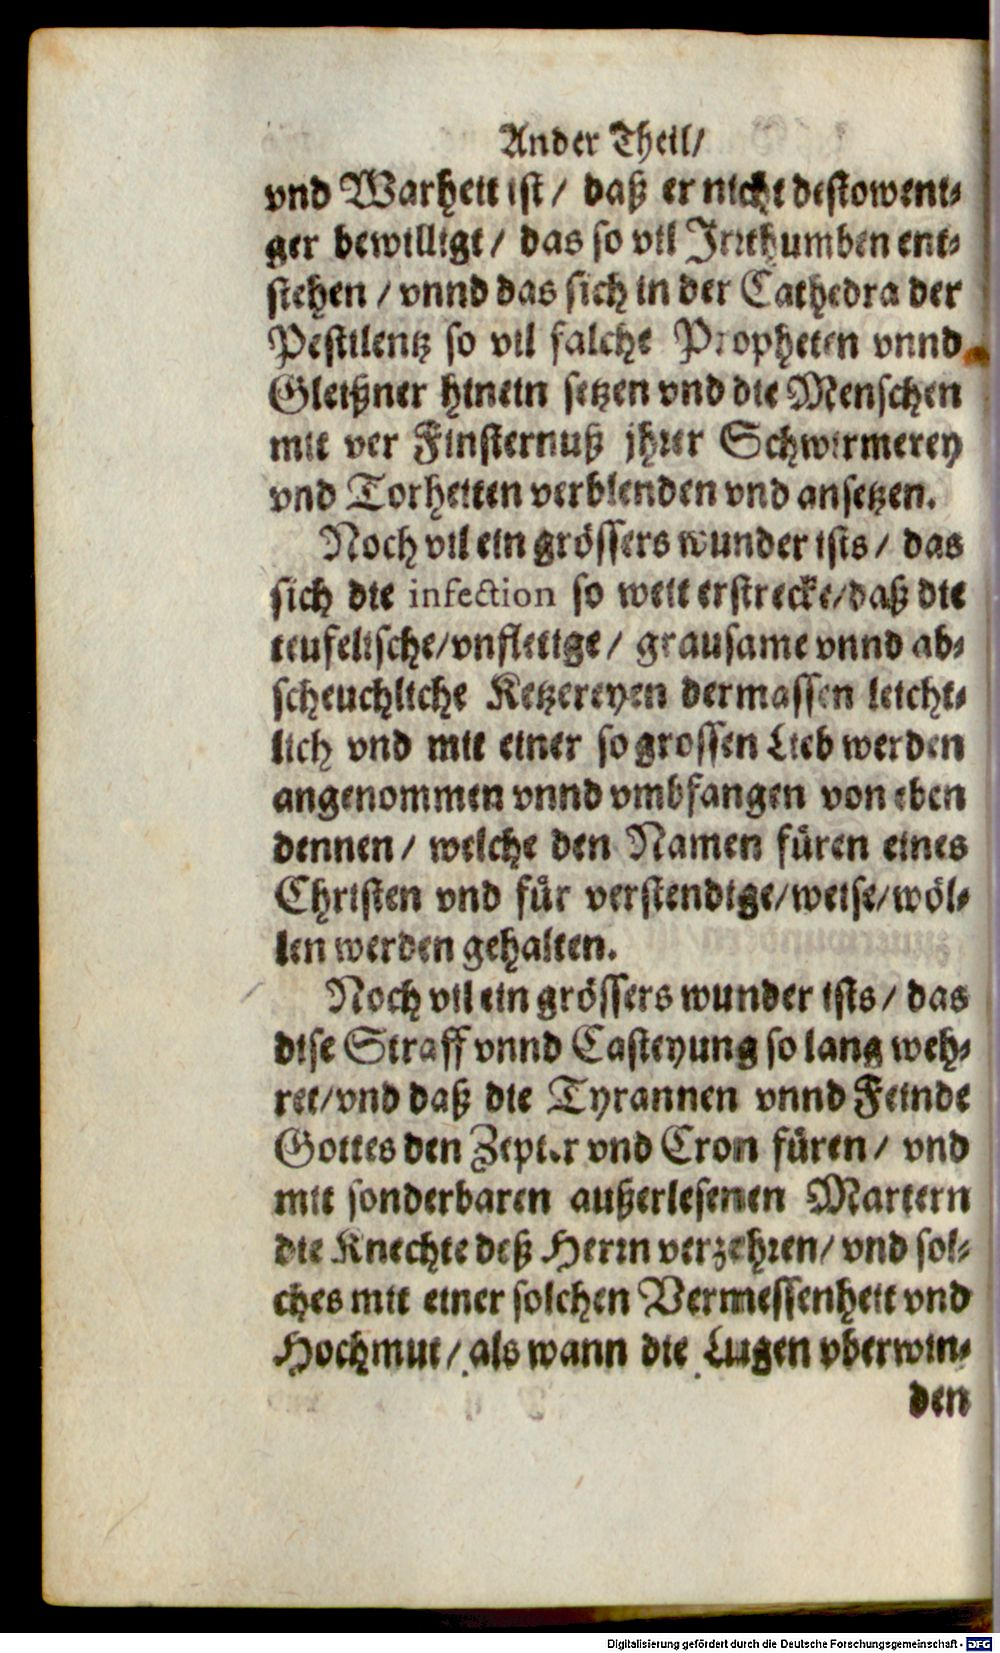 Ander Theil/
vnd Warheit ist / daß er nicht destoweni-
ger bewilligt / das so vil Irrthumben ent-
stehen / vnnd das sich in der Cathedra der
Pestilentz so vil falche Propheten vnnd
Gleißner hinein setzen vnd die Menschen
mit ver Finsternuß jhrer Schwirmerey
vnd Torheiten verblenden vnd ansetzen.
Noch vil ein grössers wunder ists / das
sich die infection so weit erstrecke/daß die
teufelische/vnfletige / grausame vnnd ab-
scheuchliche Ketzereyen dermassen leicht-
lich vnd mit einer so grossen Lieb werden
angenommen vnnd vmbfangen von eben
dennen / welche den Namen füren eines
Christen vnd für verstendige/weise/wöl-
len werden gehalten.
Noch vil ein grössers wunder ists / das
dise Straff vnnd Casteyung so lang weh-
ret/vnd daß die Tyrannen vnnd Feinde
Gottes den Zepter vnd Cron füren / vnd
mit sonderbaren außerlesenen Martern
die Knechte deß Herrn verzehren/ vnd sol-
ches mit einer solchen Vermessenheit vnd
Hochmut / als wann die Lugen vberwin-
den
Digitalisierung gefördert durch die Deutsche Forschungsgemeinschaft - DFG